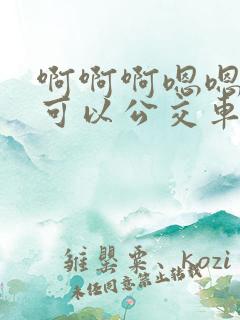 啊啊啊嗯嗯
可以公交車
雒巽粟、kozi
未经同意禁止转载